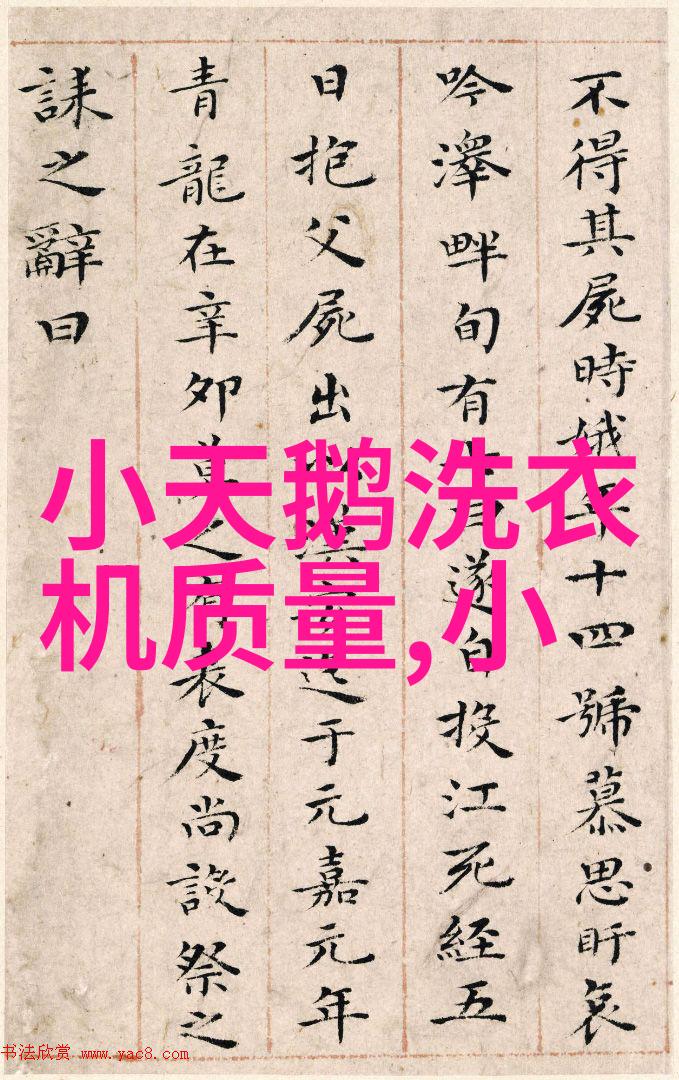 不得其屍時娥年十四號慕思盱哀
吟澤畔旬有七日遂自投江死經五
日抱父屍出以漢安迄于元嘉元年
青龍在辛卯莫之有表度尚設祭之
誄之辭曰
小天鹅洗衣
机质量,小
书法欣赏 www.yac8.com